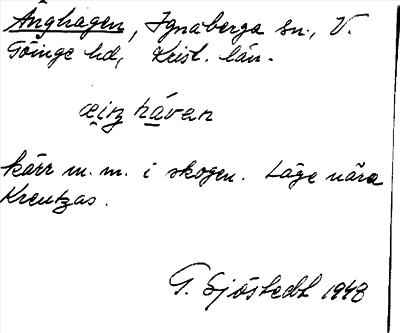 Änghagen, Ignaberga sn., V.
Göinge hd, Krist. län.
æi̯ŋ hávan
kärr m.m. i skogen. Läge nära
Kreutzas.
G. Sjöstedt 1948